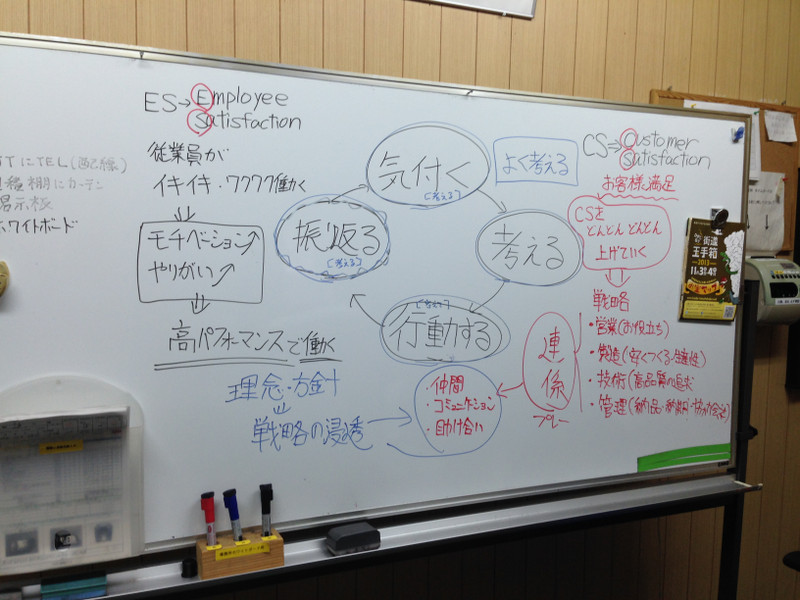 ES→Employee
Satisfaction
従業員が
イキイキ・ワクワク働く
モチベーション↗
やりがい↗
高パフォーマンスで働く
理念・方針
戦略の浸透
TにTEL(配線)
棚にカーテン
掲示板
ホワイトボード
気付く
(考える)
よく考える
振り返る
(考える)
考える
行動する
・仲間
・コミュニケーション
・助け合い
連係
プレー
CS→Customer
Satisfaction
お客様満足
CSを
どんどん どんどん
上げていく
戦略
・営業(お役立ち)
・製造(安くつくる・生産性)
・技術(高品質の追求
・管理(納品・
街道
玉手箱
2013